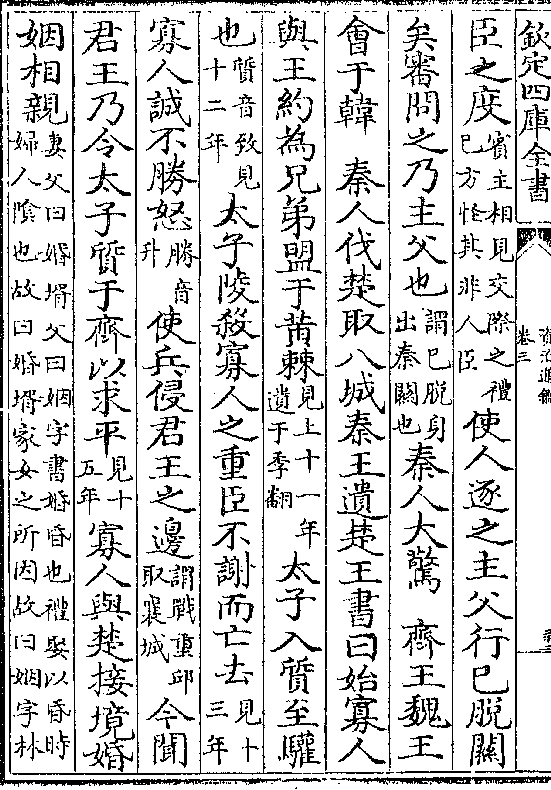 欽定四庫全書
資治通鑑
卷三
臣之度賓主相見交際之禮已方怪其非人臣使人逐之主父行已脫關
矣審問之乃主父也謂已脫身出秦關也秦人大驚　齊王魏王
會于韓　秦人伐楚取八城秦王遺楚王書曰始寡人
與王約為兄弟盟于黄棘見上十一年遺于季翻太子入質至驩
也質音致見十二年太子陵殺寡人之重臣不謝而亡去見十三年
寡人誠不勝怒勝音升使兵侵君王之邊謂戰重邱取襄城今聞
君王乃令太子質于齊以求平見十五年寡人與楚接境婚
姻相親妻父曰婚壻父曰姻字書婚昏也禮娶以昏時婦人陰也故曰婚壻家女之所因故曰姻字林